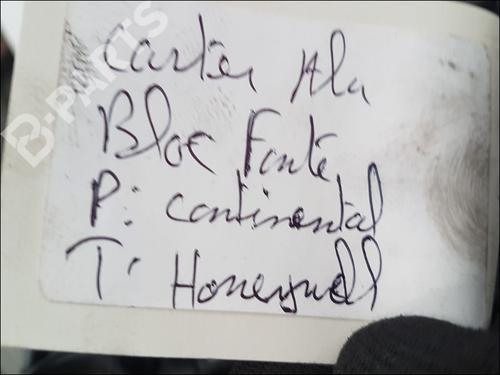 B-PARTS
Carter Alu
Bloc Fonte
P: Continental
T: Honeywell